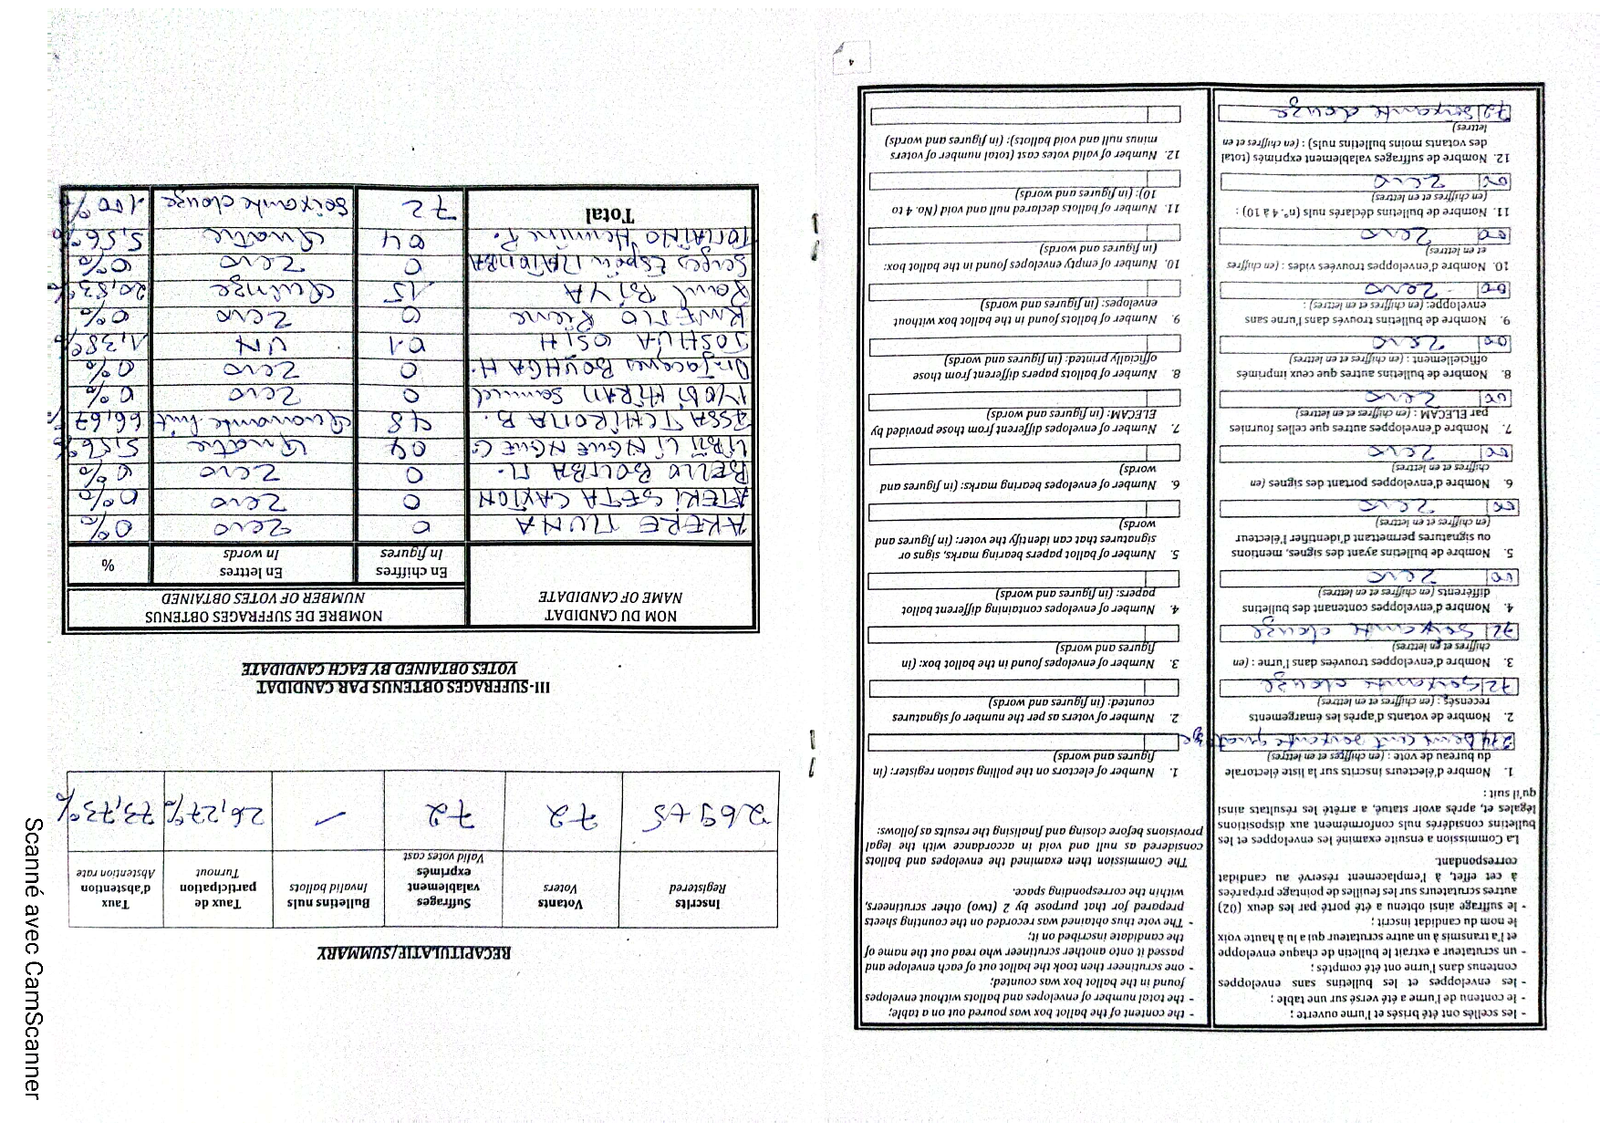 - les scellés ont été brisés et l'urne ouverte ;
- le contenu de l'urne a été versé sur une table ;
- les enveloppes et les bulletins sans enveloppes
contenus dans l'urne ont été comptés ;
- un scrutateur a extrait le bulletin de chaque enveloppe
et l'a transmis à un autre scrutateur qui a lu à haute voix
le nom du candidat inscrit ;
- le suffrage ainsi obtenu a été porté par les deux (02)
autres scrutateurs sur les feuilles de pointage préparées
à cet effet, à l'emplacement réservé au candidat
correspondant.
La Commission a ensuite examiné les enveloppes et les
bulletins considérés nuls conformément aux dispositions
légales et, après avoir statué, a arrêté les résultats ainsi
qu'il suit :
1. Nombre d'électeurs inscrits sur la liste électorale
du bureau de vote : (en chiffres et en lettres)
274 Deux cent soixante quatorze
2. Nombre de votants d'après les émargements
recensés : (en chiffres et en lettres)
72 soixante douze
3. Nombre d'enveloppes trouvées dans l'urne : (en
chiffres et en lettres)
72 soixante douze
4. Nombre d'enveloppes contenant des bulletins
différents (en chiffres et en lettres)
00 Zero
5. Nombre de bulletins ayant des signes, mentions
ou signatures permettant d'identifier l'électeur
(en chiffres et en lettres)
00 Zero
6. Nombre d'enveloppes portant des signes (en
chiffres et en lettres)
00 Zero
7. Nombre d'enveloppes autres que celles fournies
par ELECAM : (en chiffres et en lettres)
00 Zero
8. Nombre de bulletins autres que ceux imprimés
officiellement : (en chiffres et en lettres)
00 Zero
9. Nombre de bulletins trouvés dans l'urne sans
enveloppe: (en chiffres et en lettres) :
00 Zero
10. Nombre d'enveloppes trouvées vides : (en chiffres
et en lettres)
00 Zero
11. Nombre de bulletins déclarés nuls (n°. 4 à 10) :
(en chiffres et en lettres)
00 Zero
12. Nombre de suffrages valablement exprimés (total
des votants moins bulletins nuls) : (en chiffres et en
lettres)
72 soixante douze
- the content of the ballot box was poured out on a table;
- the total number of envelopes and ballots without envelopes
found in the ballot box was counted;
- one scrutineer then took the ballot out of each envelope and
passed it onto another scrutineer who read out the name of
the candidate inscribed on it;
- The vote thus obtained was recorded on the counting sheets
prepared for that purpose by 2 (two) other scrutineers,
within the corresponding space.
The Commission then examined the envelopes and ballots
considered as null and void in accordance with the legal
provisions before closing and finalising the results as follows:
1. Number of electors on the polling station register: (in
figures and words)
2. Number of voters as per the number of signatures
counted: (in figures and words)
3. Number of envelopes found in the ballot box: (in
figures and words)
4. Number of envelopes containing different ballot
papers: (in figures and words)
5. Number of ballot papers bearing marks, signs or
signatures that can identify the voter: (in figures and
words)
6. Number of envelopes bearing marks: (in figures and
words)
7. Number of envelopes different from those provided by
ELECAM: (in figures and words)
8. Number of ballots papers different from those
officially printed: (in figures and words)
9. Number of ballots found in the ballot box without
envelopes: (in figures and words)
10. Number of empty envelopes found in the ballot box:
(in figures and words)
11. Number of ballots declared null and void (No. 4 to
10): (in figures and words)
12. Number of valid votes cast (total number of voters
minus null and void ballots): (in figures and words)
4
RECAPITULATIF/SUMMARY
Inscrits Registered
Votants Voters
Suffrages valablement exprimés Valid votes cast
Bulletins nuls Invalid ballots
Taux de participation Turnout
Taux d'abstention Abstention rate
269+5 72 72 / 26,27% 73,73%
III- SUFFRAGES OBTENUS PAR CANDIDAT
VOTES OBTAINED BY EACH CANDIDATE
NOM DU CANDIDAT
NAME OF CANDIDATE
NOMBRE DE SUFFRAGES OBTENUS
NUMBER OF VOTES OBTAINED
En chiffres In figures
En lettres In words
%
AKERE MUNA 0 Zero 0%
ATEKI SETA CAXTON 0 Zero 0%
BELLO BOUBA M. 0 Zero 0%
LIBII LI NGUE NGUE C 04 Quatre 5,56%
ISSA TCHIROMA B. 48 Quarante huit 66,67
IYODI HIRAM Samuel 0 Zero 0%
Dr Jacques BOUHGA H. 0 Zero 0%
JOSHUA OSIH 01 UN 1,38%
KWEMO Pierre 0 Zero 0%
Paul BIYA 15 Quinze 20,83%
Serges Espoir MATOMBA 0 Zero 0%
TOMAINO Hermine P. 04 Quatre 5,56%
Total 72 Soixante douze 100%
Scanné avec CamScanner